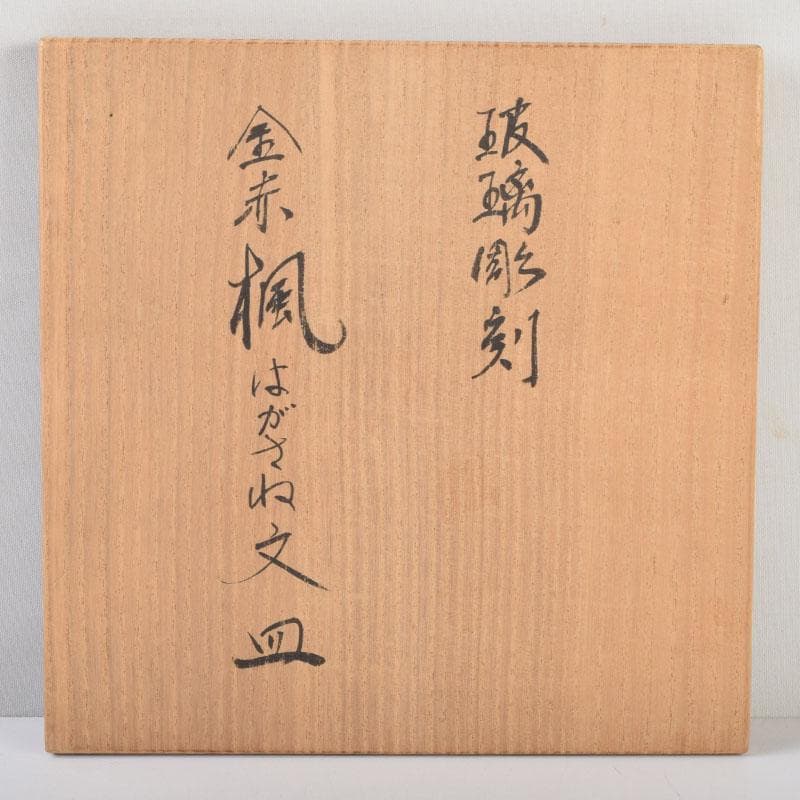 玻璃彫刻
金赤楓はがさね文皿